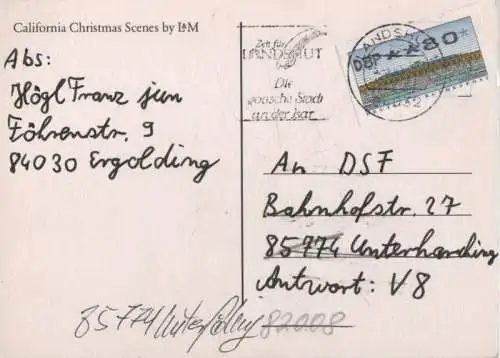 California Christmas Scenes by I&M
Abs:
Högl Franz jun
Föhrenstr. 9
84030 Ergolding
Zeit für
LANDSHUT
Die
gotische Stadt
an der Isar
LANDSHUT
DBP 80
An DSF
Bahnhofstr. 27
85774 Unterhanding
Antwort: V8
85774 82008